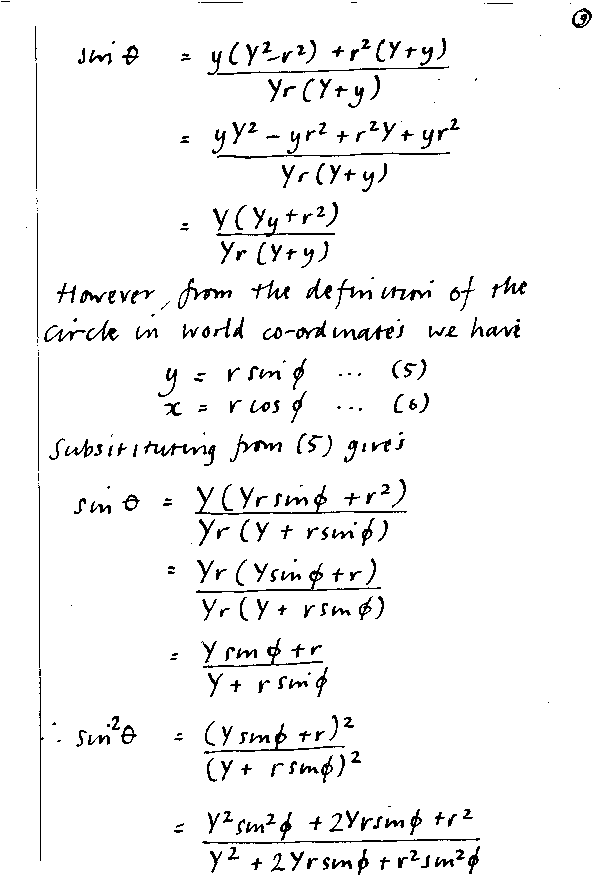 9
sin θ = y(Y²-r²) + r²(Y+y) / Yr(Y+y)
= yY² - yr² + r²Y + yr² / Yr(Y+y)
= Y(Yy+r²) / Yr(Y+y)
However, from the definition of the
circle in world co-ordinates we have
y = r sin ϕ ... (5)
x = r cos ϕ ... (6)
Substituting from (5) gives
sin θ = Y(Yr sin ϕ + r²) / Yr(Y + r sin ϕ)
= Yr(Y sin ϕ + r) / Yr(Y + r sin ϕ)
= Y sin ϕ + r / Y + r sin ϕ
∴ sin²θ = (Y sin ϕ + r)² / (Y + r sin ϕ)²
= Y² sin² ϕ + 2Yr sin ϕ + r² / Y² + 2Yr sin ϕ + r² sin² ϕ